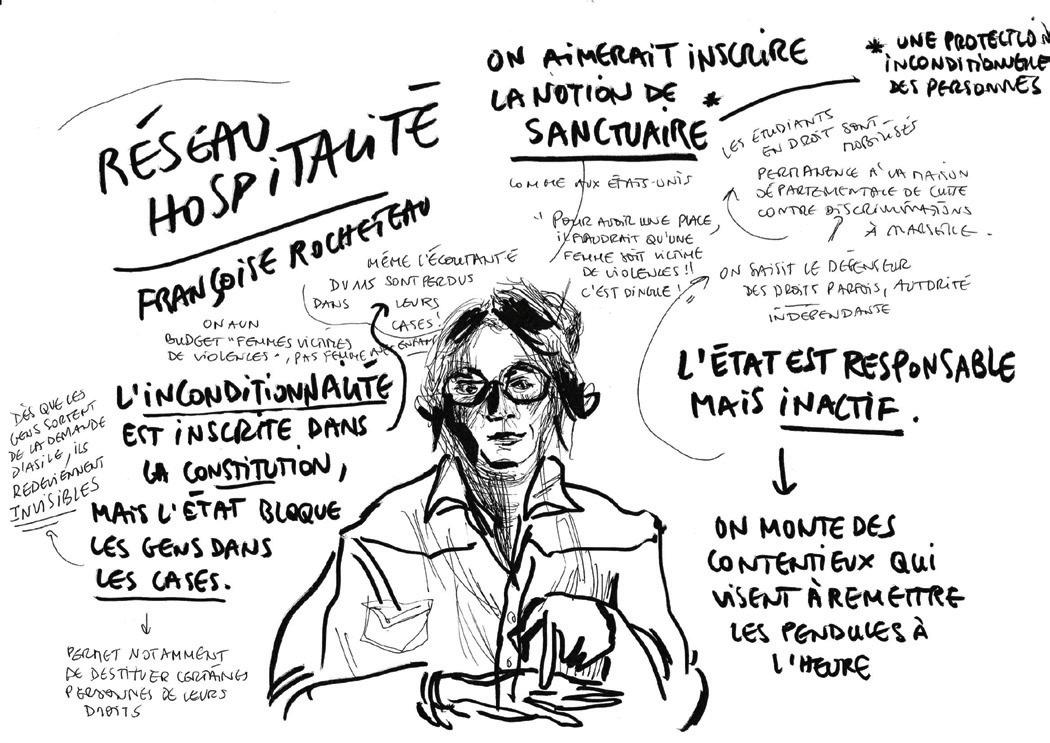 RÉSEAU
HOSPITALITÉ
FRANÇOISE ROCHETEAU
ON AIMERAIT INSCRIRE
LA NOTION DE *
SANCTUAIRE
COMME AUX ÉTATS-UNIS
* UNE PROTECTION
INCONDITIONNELLE
DES PERSONNES
LES ÉTUDIANTS
EN DROIT SONT
MOBILISÉS
PERMANENCE À LA MAISON
DÉPARTEMENTALE DE LUTTE
CONTRE DISCRIMINATIONS
À MARSEILLE.
"POUR AVOIR UNE PLACE,
IL FAUDRAIT QU'UNE
FEMME SOIT VICTIME
DE VIOLENCES !!
C'EST DINGUE !
ON SAISIT LE DÉFENSEUR
DES DROITS PARFOIS, AUTORITÉ
INDÉPENDANTE
MÊME L'ÉCOUTANT·E
DU 115 SONT PERDUS
DANS LEURS
CASES !
ON A UN
BUDGET "FEMMES VICTIMES
DE VIOLENCES", PAS FEMME AVEC ENFANT
L'INCONDITIONNALITÉ
EST INSCRITE DANS
LA CONSTITUTION,
MAIS L'ÉTAT BLOQUE
LES GENS DANS
LES CASES.
DÈS QUE LES
GENS SORTENT
DE LA DEMANDE
D'ASILE, ILS
REDEVIENNENT
INVISIBLES
PERMET NOTAMMENT
DE DESTITUER CERTAINES
PERSONNES DE LEURS
DROITS
L'ÉTAT EST RESPONSABLE
MAIS INACTIF.
ON MONTE DES
CONTENTIEUX QUI
VISENT À REMETTRE
LES PENDULES À
L'HEURE